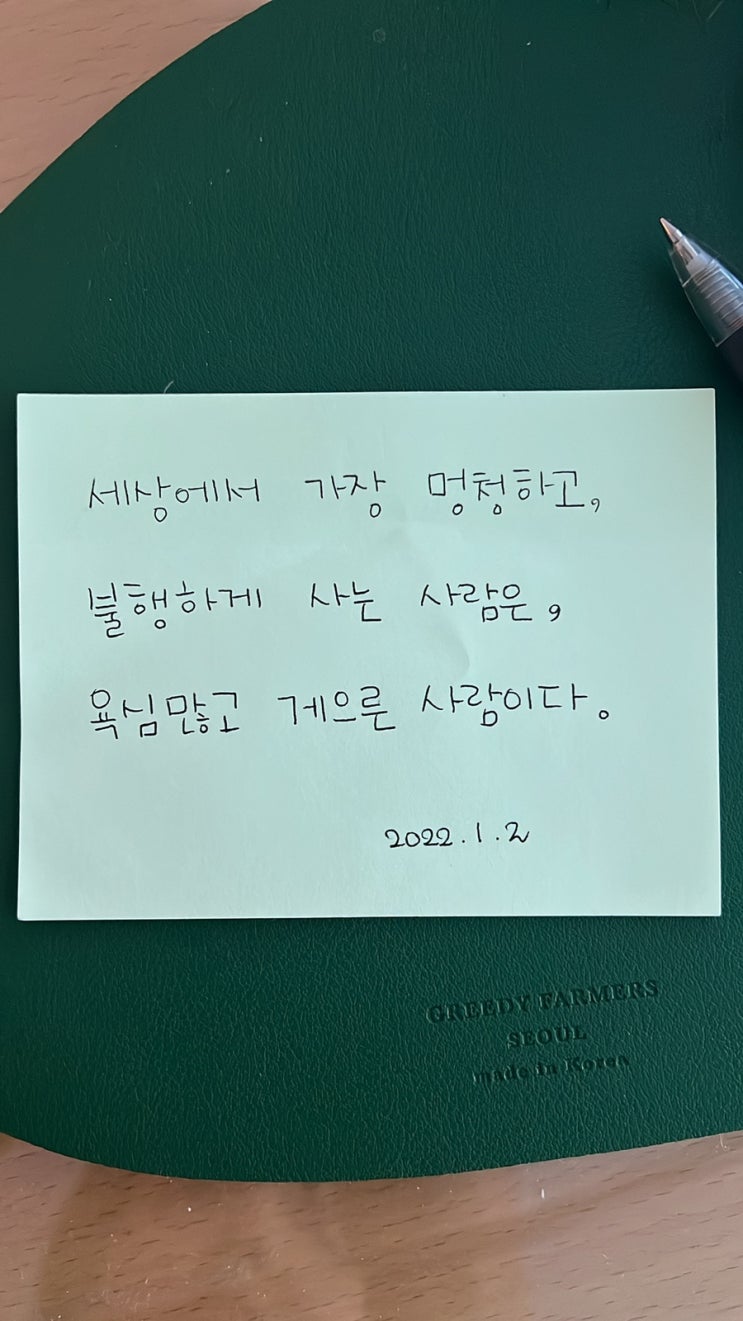 세상에서 가장 멍청하고,
불행하게 사는 사람은,
욕심많고 게으른 사람이다.
2022.1.2
GREEDY FARMERS
SEOUL
made in Korea